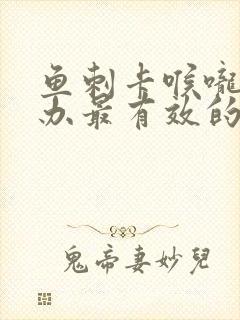 鱼刺卡喉咙
办最有效的
鬼帝妻妙兒